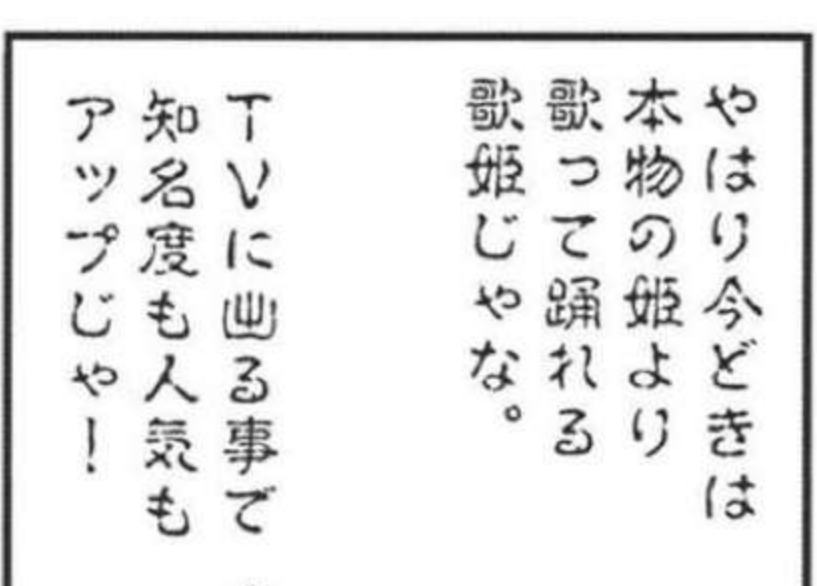 やはり今どきは
本物の姫より
歌って踊れる
歌姫じゃな。
TVに出る事で
知名度も人気も
アップじゃ!